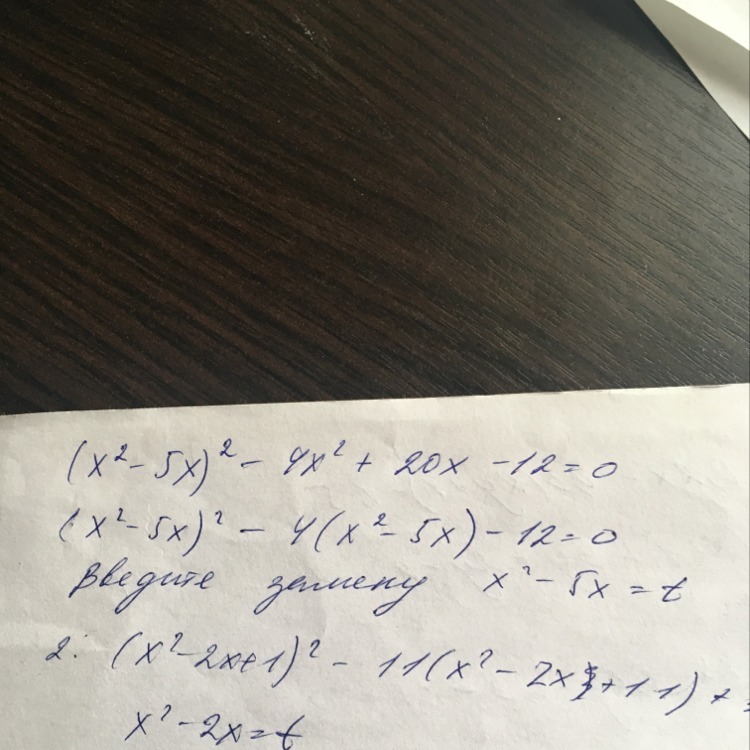 (x² - 5x)² - 4x² + 20x - 12 = 0
(x² - 5x)² - 4(x² - 5x) - 12 = 0
Введите замену x² - 5x = t
2. (x² - 2x + 1)² - 11(x² - 2x + 11) +
x² - 2x = t